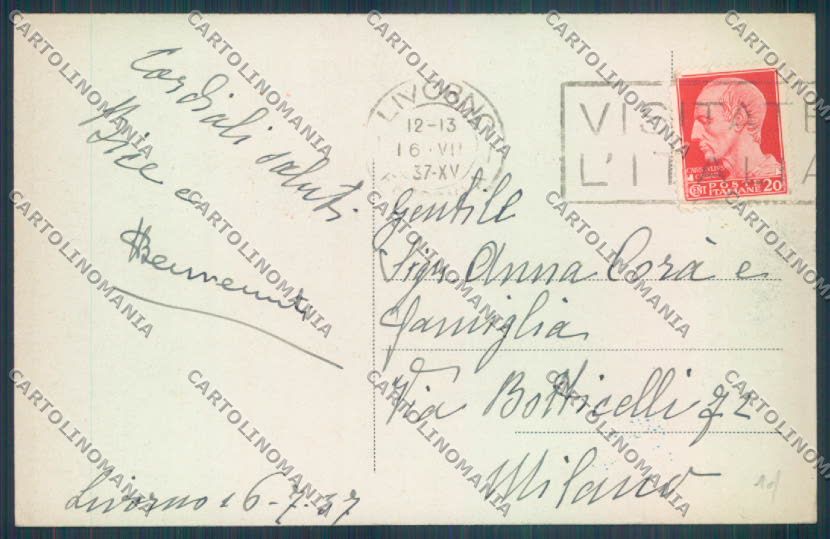 Cordiali saluti
Bice e
Benvenuti
Livorno 16-7.37
LIVORNO
12-13
16·VII
37-XV
VISITATE
L'ITALIA
CENT POSTE ITALIANE 20
Gentile
Sig. Anna Corà e
famiglia
Via Botticelli
Milano
CARTOLINOMANIA